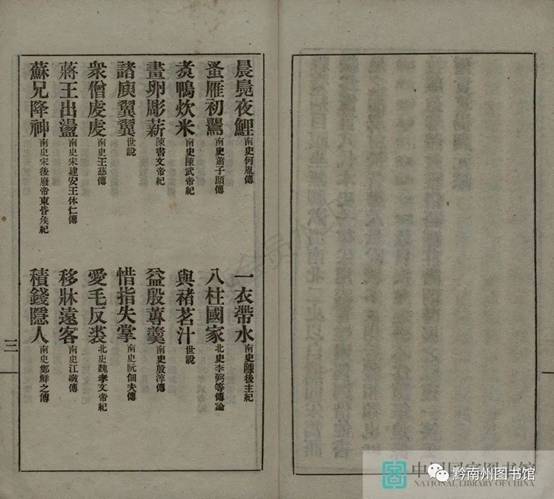 晨鳧夜鯉 南史何胤傳 一衣帶水 南史陳後主紀
蚤雁初鶯 南史蕭子顯傳 八柱國家 北史李弼等傳論
煮鴨炊米 南史陳武帝紀 與褚茗汁 世說
畫卵彫薪 陳書文帝紀 益殷蓴羹 南史殷淳傳
諸庾翼翼 世說 惜指失掌 南史阮佃夫傳
衆僧虔虔 南史王慈傳 愛毛反裘 北史魏孝文帝紀
蔣王出盪 南史宋建安王休仁傳 移牀遠客 南史江斆傳
蘇兄降神 南史宋後廢帝東昏侯紀 積錢隱人 南史鄭鮮之傳
三
黔南州图书馆
NATIONAL LIBRARY OF CHINA